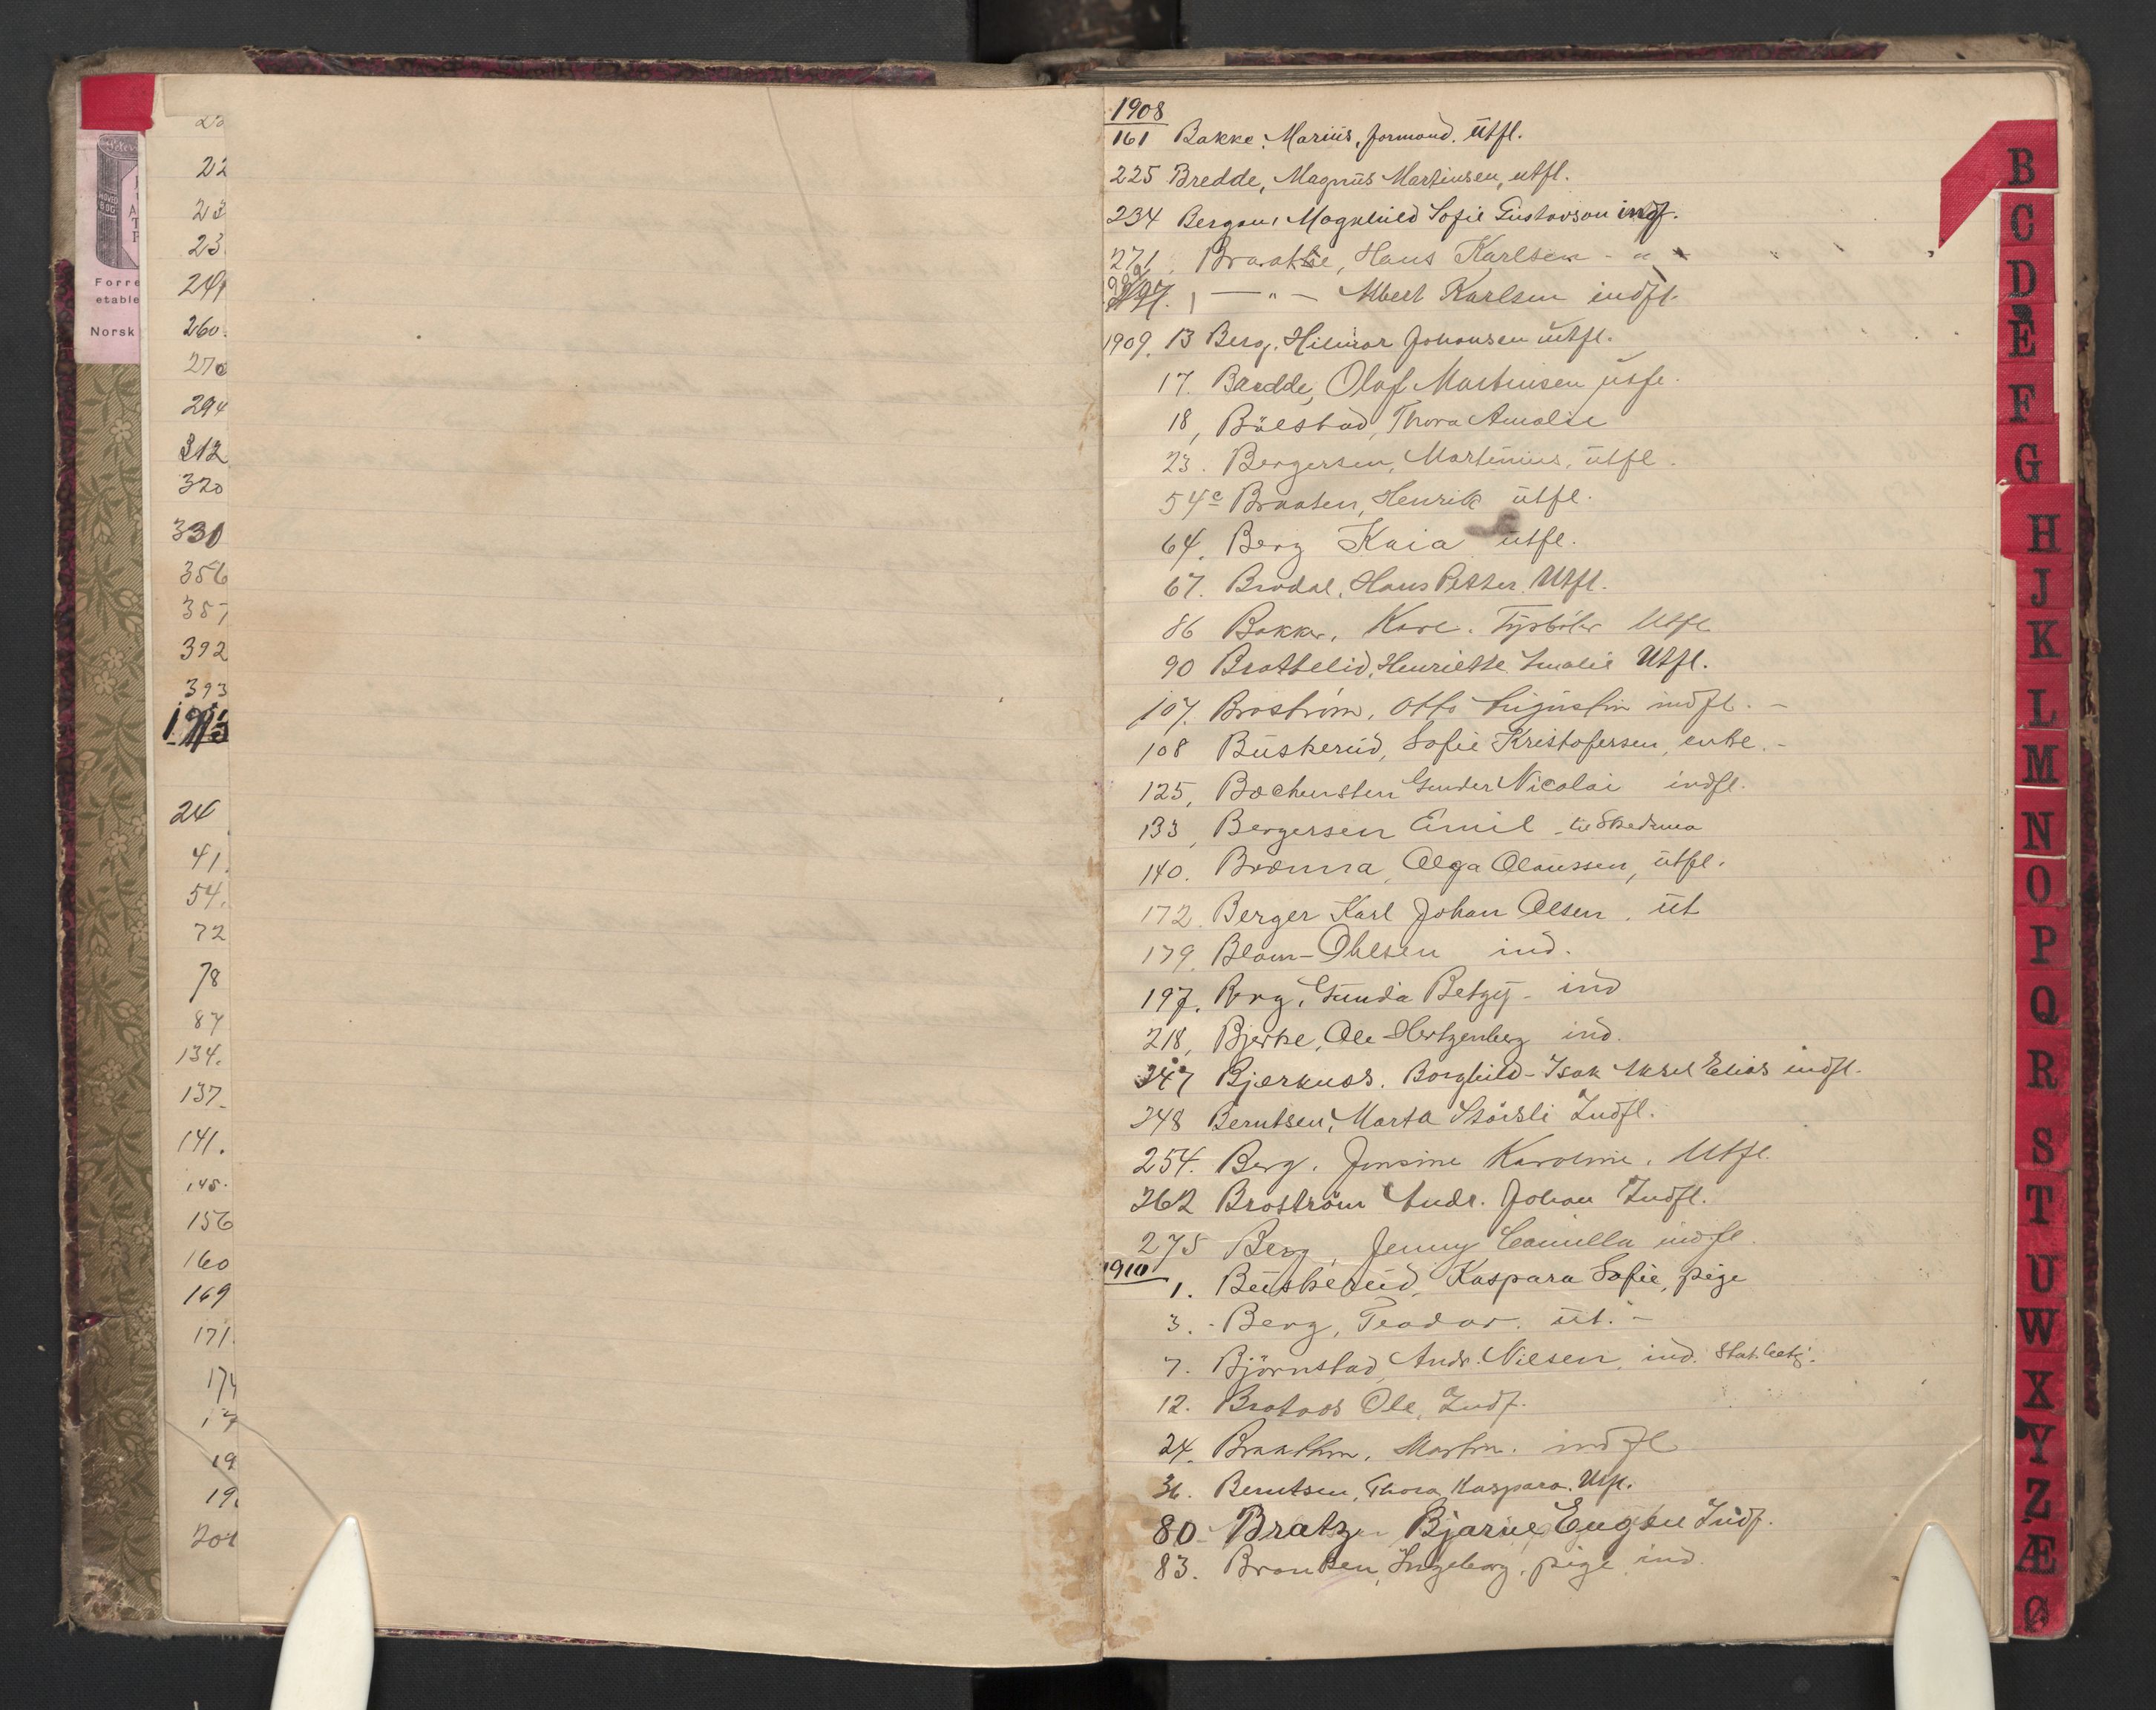 22
23
23
249
260.
270
294
312
320
330
356
357
392
393
1913
24
41.
54.
72
78
87
134.
137
141.
145.
156
160
169
171
174
17
19
19
201
Forre
etable
Norsk
1908
161 Bakke, Marius, formand. utfl.
225 Bredde, Magnus Martinsen, utfl.
234 Bergan, Magnhild Sofie Gustavson indf.
271. Braathe, Hans Karlsen - " -
— " — Albert Karlsen indfl.
1909. 13 Berg, Hilmar Johansen utfl.
17. Bredde, Olaf Martinsen utfl.
18, Bölstad, Thora Amalie
23. Bergersen, Martinius, utfl.
54c Braaten, Henrik utfl.
64. Berg Kaia utfl.
67. Brodal, Hans Petter Utfl.
86 Bakke, Kare. Utfl.
90 Brattelid, Henriette Amalie Utfl.
107. Broström, Otto Augustin indfl. -
108 Buskerud, Sofie Kristofersen, enke. -
125, Gunder Nicolai indfl.
133, Bergersen Emil - til Skedsmo
140. Brænna, Olga Olaussen, utfl.
172. Berger Karl Johan Olsen. ut
179. Blom-Ohlsen ind.
197. Berg, Gunda Betzy - ind
218, Bjerke, Ole Hertzenberg ind.
247 Bjerknes. Borghild - Isak Aksel Elias indfl.
248 Berntsen, Marta Indfl.
254. Berg, Jonsine Karoline. Utfl.
262 Broström Andr. Johan Indfl.
275 Berg, Jenny Camilla indfl.
1910
1. Buskerud, Kaspara Sofie, pige
3. - Berg, Teodor. ut. -
7. Björnstad, Andr. Nilsen, ind.
12. Brataas Ole, Indf.
24. Braathen, Martin. indfl
36. Berntsen, Thora Kaspara. Utfl.
80 - Bratz Bjarne Eugen Indf.
83. Ingeborg, pige ind.
B
C
D
E
F
G
H
J
K
L
M
N
O
P
Q
R
S
T
U
W
X
Y
Z
Æ
Ø